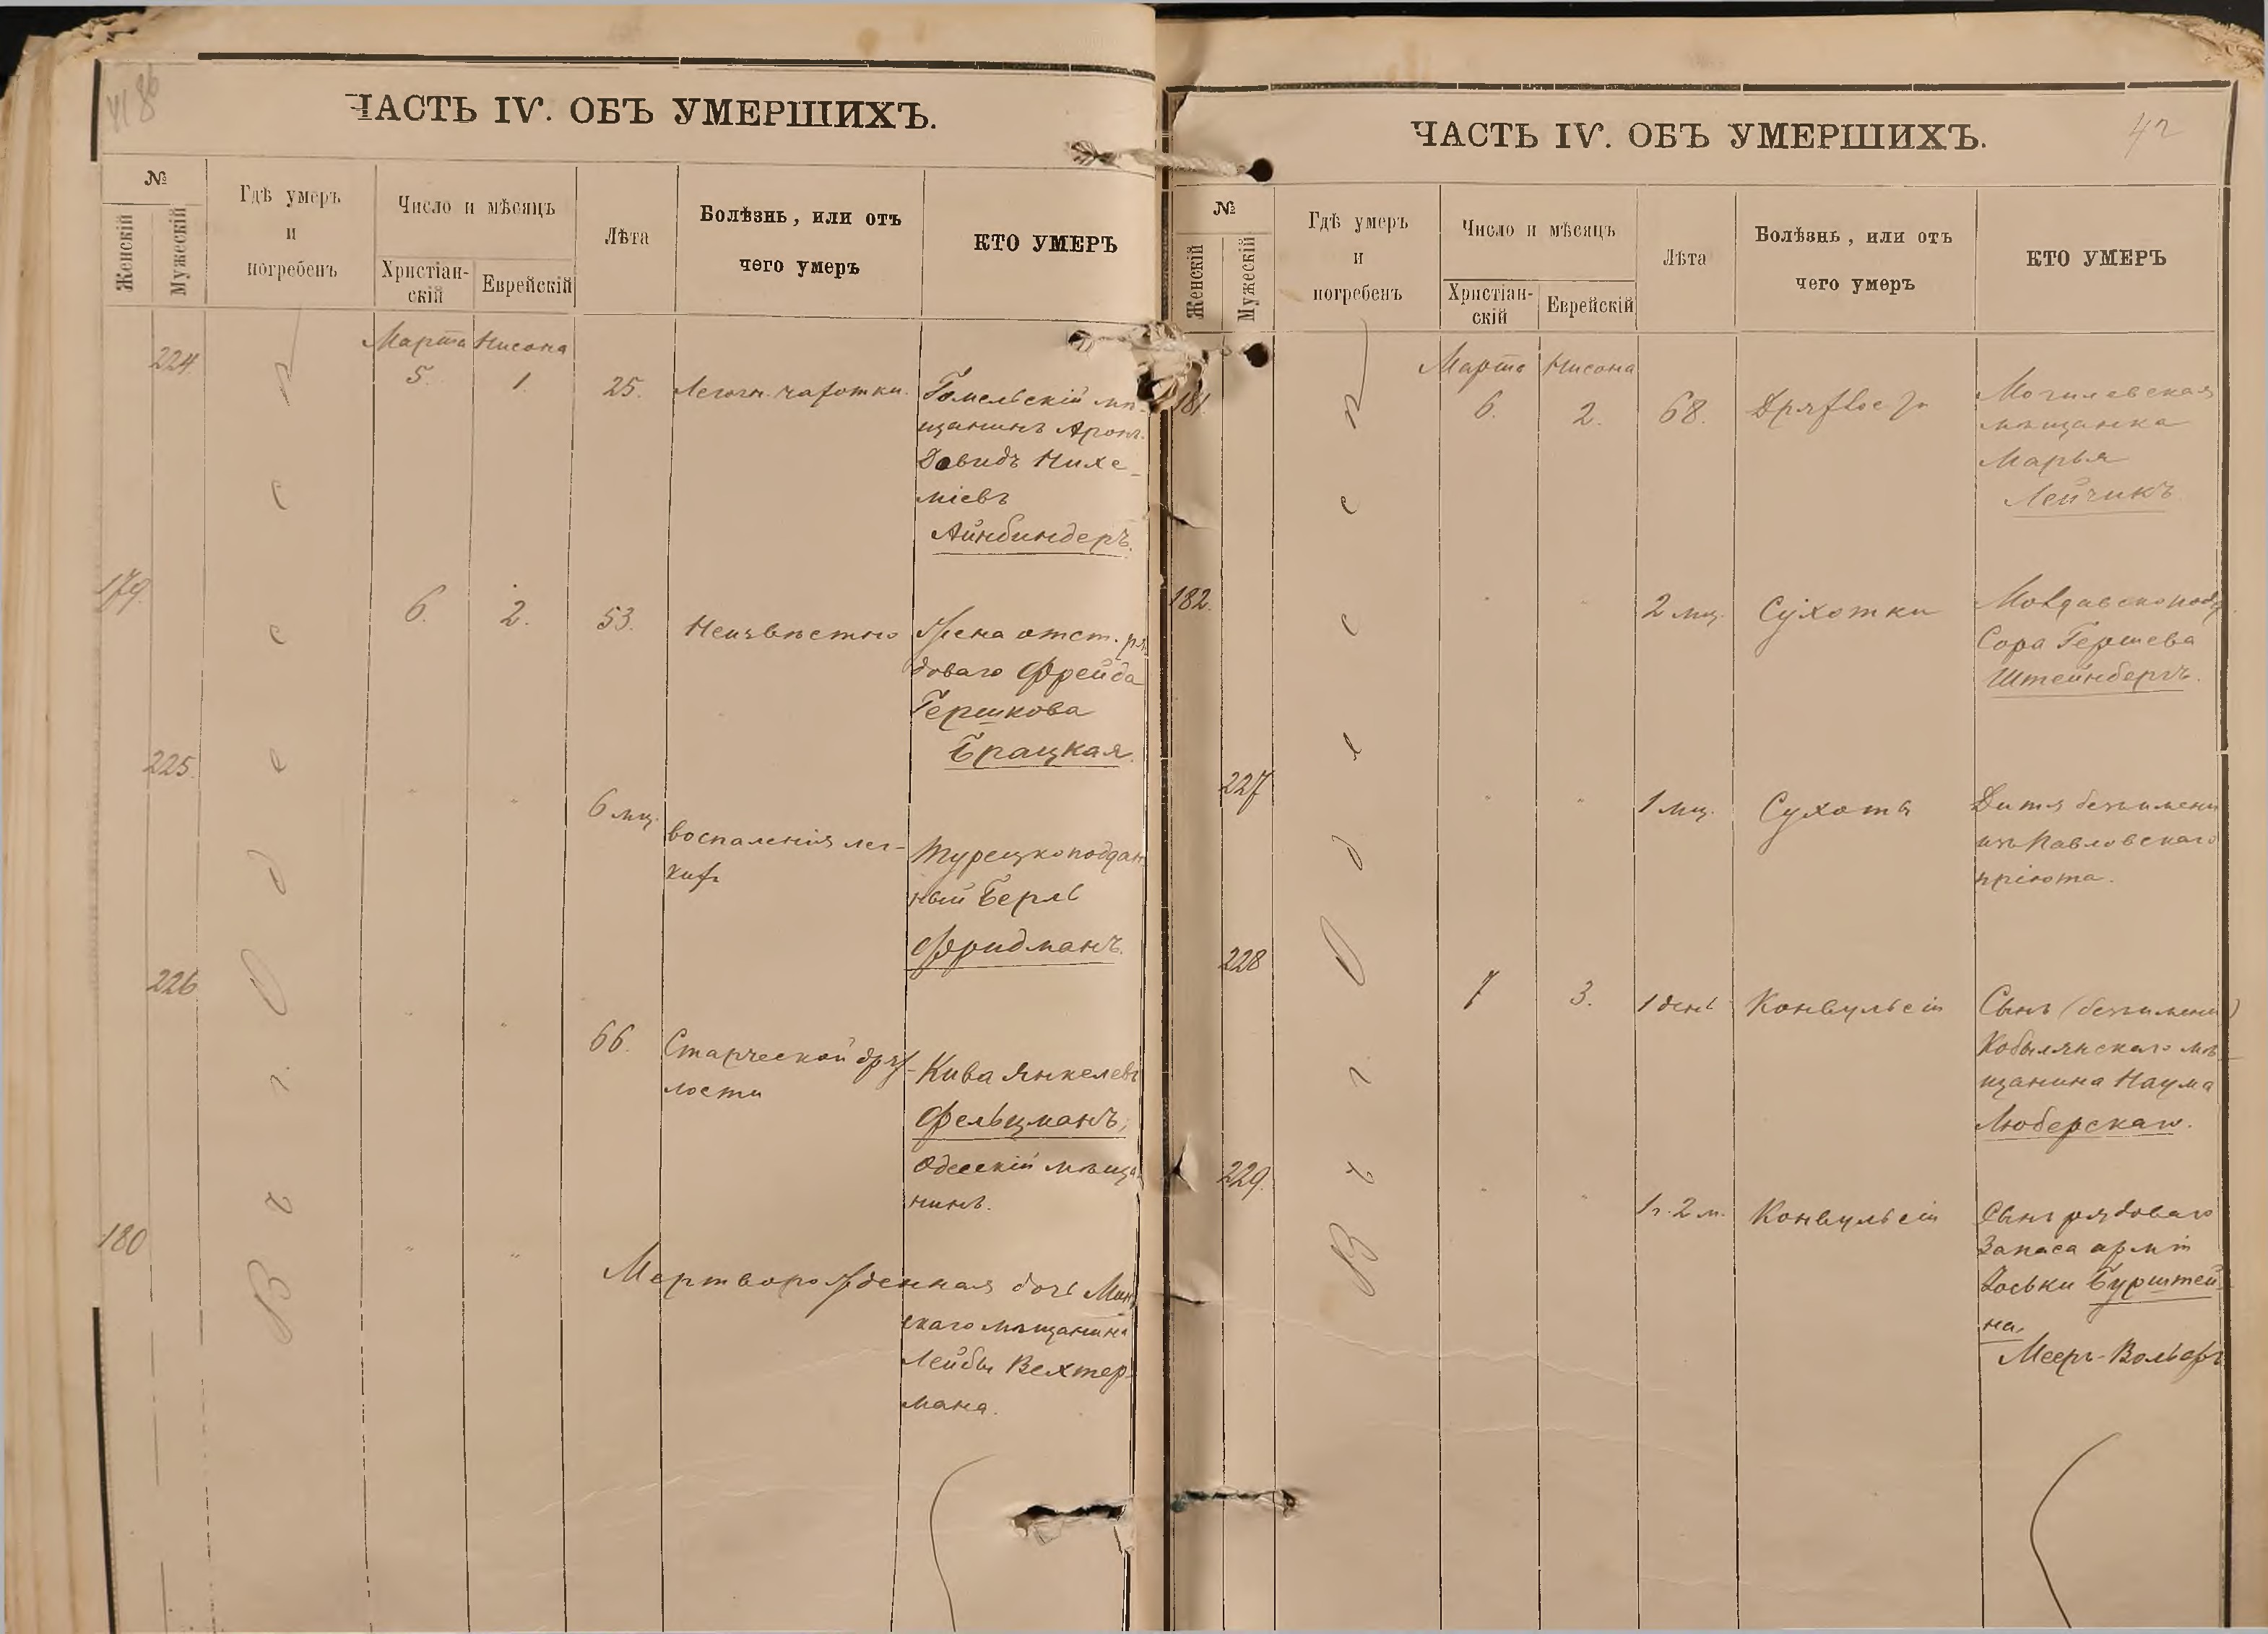 ЧАСТЬ IV. ОБЪ УМЕРШИХЪ.
№
Женскій
Мужескій
Гдѣ умеръ
и
погребенъ
Число и мѣсяцъ
Христіан-
скій
Еврейскій
Лѣта
Болѣзнь, или отъ
чего умеръ
КТО УМЕРЪ
Въ г. Одессѣ
Марта Нисона
224. 5. 1. 25. Легочн. чахотки. Гомельскій мѣ-
щанинъ Аронъ-
Давидъ Нихе-
міевъ
Айнбиндеръ.
179. 6. 2. 53. Неизвѣстно Жена отст. ря
доваго Фрейда
Гершкова
Брацкая.
225. " " 6 мц. воспаленія лег- Турецкоподдан
кихъ ный Берль
Фридманъ.
226 " " 66. Старческой дрях- Кива Янкелевъ
лости Фельцманъ,
Одесскій мѣща
нинъ.
180 " " Мертворожденная дочь Мин
скаго мѣщанина
Лейбы Вехтер-
мана.
ЧАСТЬ IV. ОБЪ УМЕРШИХЪ.
42
№
Женскій
Мужескій
Гдѣ умеръ
и
погребенъ
Число и мѣсяцъ
Христіан-
скій
Еврейскій
Лѣта
Болѣзнь, или отъ
чего умеръ
КТО УМЕРЪ
Въ г. Одессѣ
Марта Нисона
181. 6. 2. 68. Могилевская
мѣщанка
Марья
Лейчикъ
182. " " 2 мц. Сухотки
Сора Гершева
Штейнбергъ.
227 " " 1 мц. Сухота Дитя безъимени
изъ Павловскаго
пріюта.
228 7 3. 1 день Конвульсіи Сынъ (безъимени)
Кобылянскаго мѣ
щанина Наума
Люберскаго.
229. " " 1 г. 2 м. Конвульсіи Сынъ рядоваго
Запаса арміи
Іоськи Бурштей
на,
Мееръ-Вольфъ